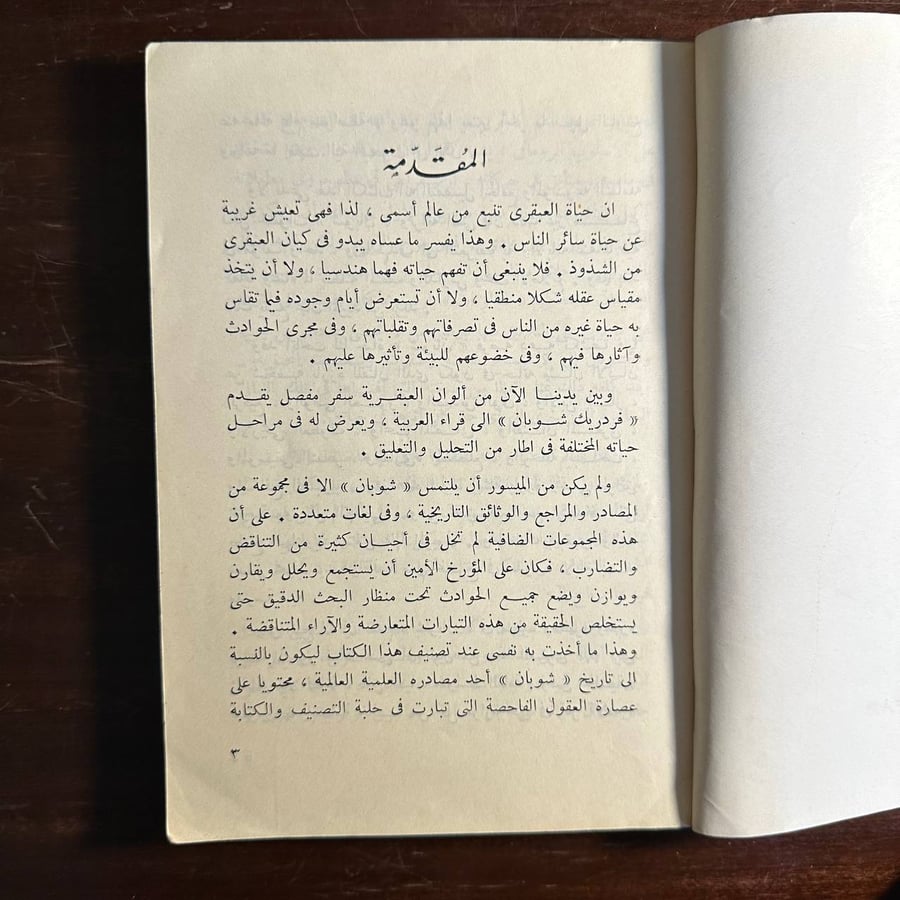 المُقَدِّمة
ان حياة العبقرى تنبع من عالم أسمى ، لذا فهى تعيش غريبة
عن حياة سائر الناس . وهذا يفسر ما عساه يبدو فى كيان العبقرى
من الشذوذ . فلا ينبغى أن تفهم حياته فهما هندسيا ، ولا أن يتخذ
مقياس عقله شكلا منطقيا ، ولا أن تستعرض أيام وجوده فيما تقاس
به حياة غيره من الناس فى تصرفاتهم وتقلباتهم ، وفى مجرى الحوادث
وآثارها فيهم ، وفى خضوعهم للبيئة وتأثيرها عليهم .
وبين يدينا الآن من ألوان العبقرية سفر مفصل يقدم
« فردريك شوبان » الى قراء العربية ، ويعرض له فى مراحل
حياته المختلفة فى اطار من التحليل والتعليق .
ولم يكن من الميسور أن يلتمس « شوبان » الا فى مجموعة من
المصادر والمراجع والوثائق التاريخية ، وفى لغات متعددة . على أن
هذه المجموعات الضافية لم تخل فى أحيان كثيرة من التناقض
والتضارب ، فكان على المؤرخ الأمين أن يستجمع ويحلل ويقارن
ويوازن ويضع جميع الحوادث تحت منظار البحث الدقيق حتى
يستخلص الحقيقة من هذه التيارات المتعارضة والآراء المتناقضة .
وهذا ما أخذت به نفسى عند تصنيف هذا الكتاب ليكون بالنسبة
الى تاريخ « شوبان » أحد مصادره العلمية العالمية ، محتويا على
عصارة العقول الفاحصة التى تبارت فى حلبة التصنيف والكتابة
٣